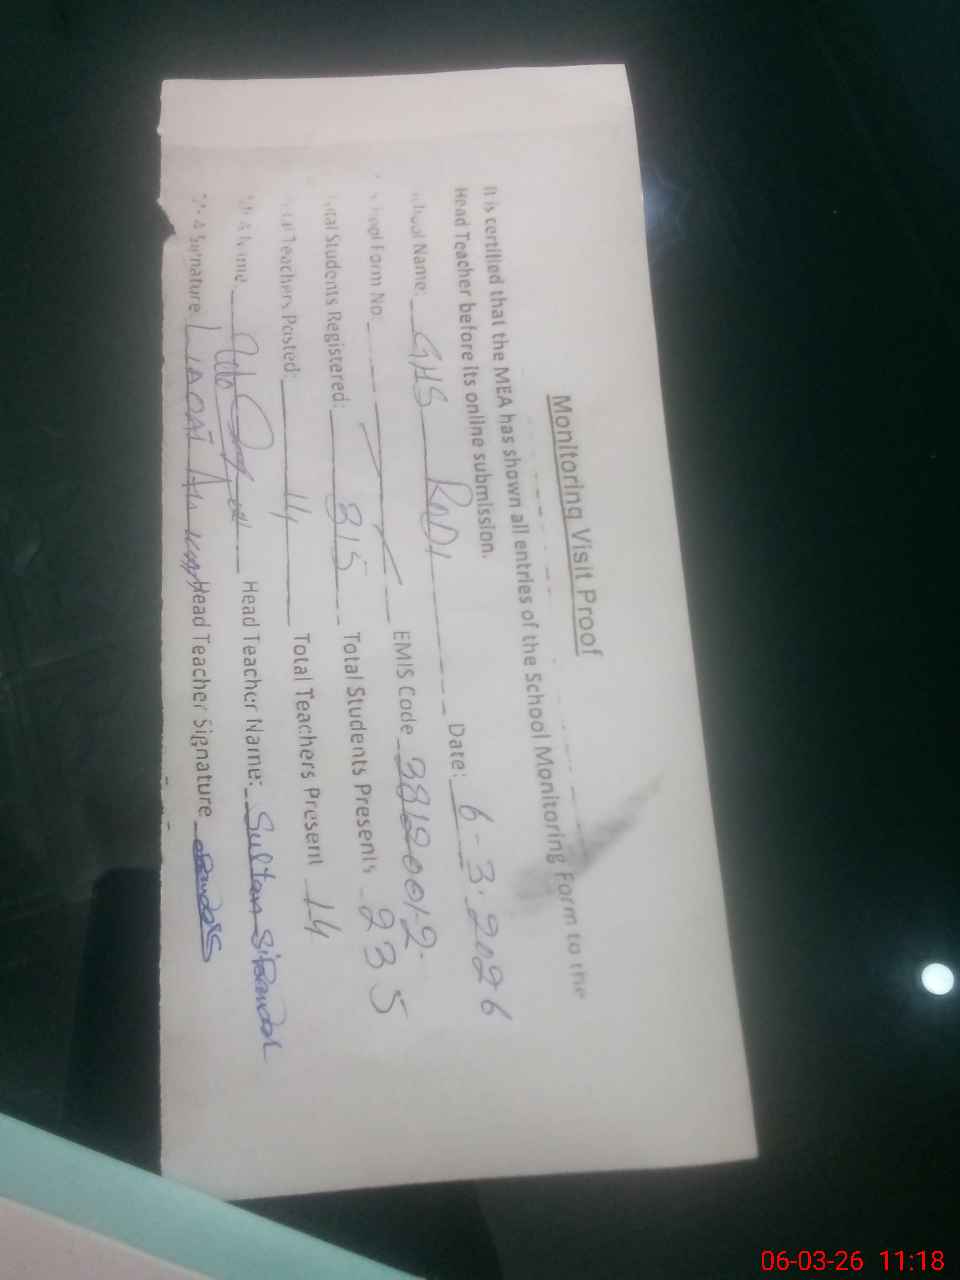 Monitoring Visit Proof
It is certified that the MEA has shown all entries of the School Monitoring Form to the
Head Teacher before its online submission.
School Name: GHS Date: 6-3-2026
School Form No: EMIS Code 38120012
Total Students Registered: 315 Total Students Presents 235
Total Teachers Posted: 14 Total Teachers Present 14
MEA Name: Head Teacher Name: Sultan Sikandar
MEA Signature Head Teacher Signature
06-03-26 11:18